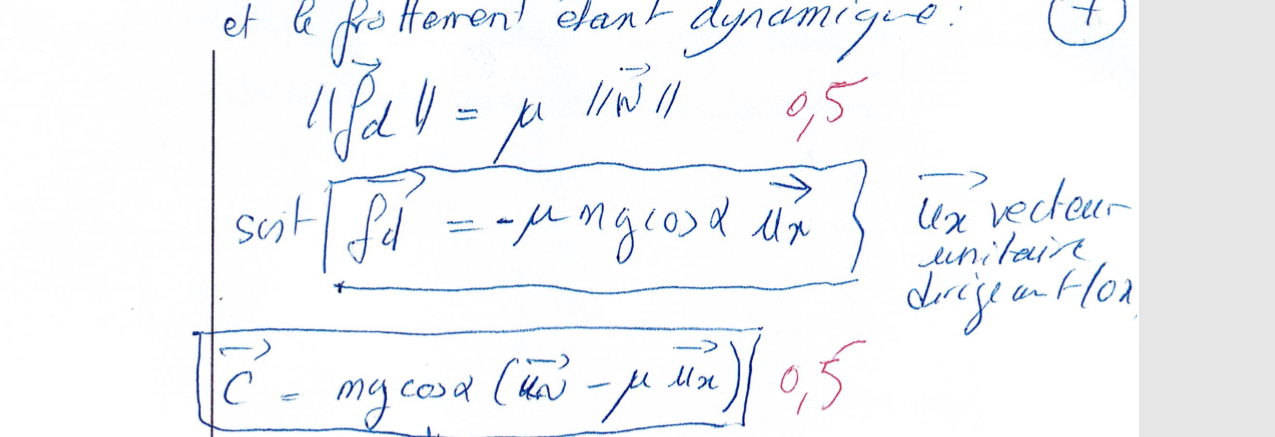 et le frottement étant dynamique : +
||f⃗d|| = μ ||N⃗|| 0,5
soit f⃗d = -μ mg cos α u⃗x
u⃗x vecteur
unitaire
dirigeant (ox
C⃗ = mg cos α (u⃗N - μ u⃗x) 0,5